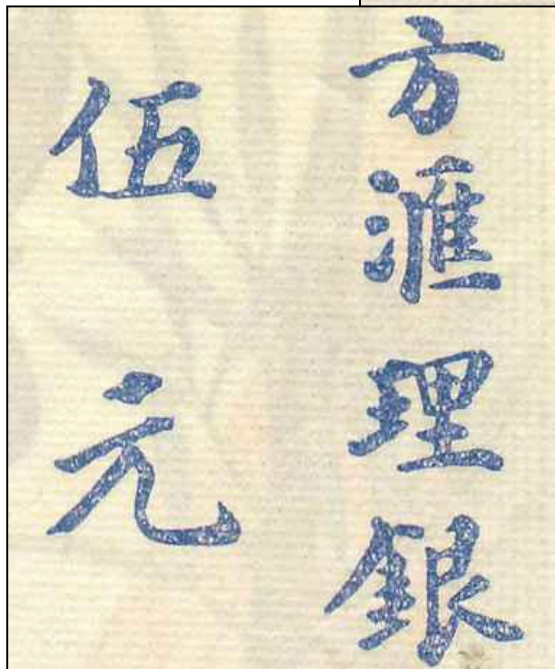 方滙理銀
伍元